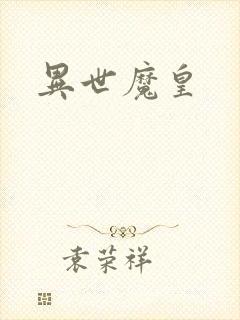 異世魔皇
袁荣祥